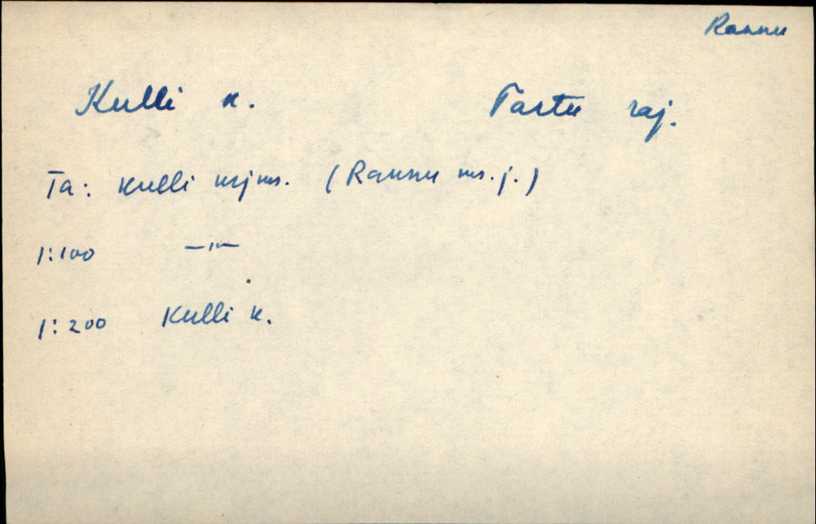 Rannu
Kulli k. Tartu raj.
Ta: Kulli krjms. (Rannu ms. j.)
1:100 —"—
1:200 Kulli k.